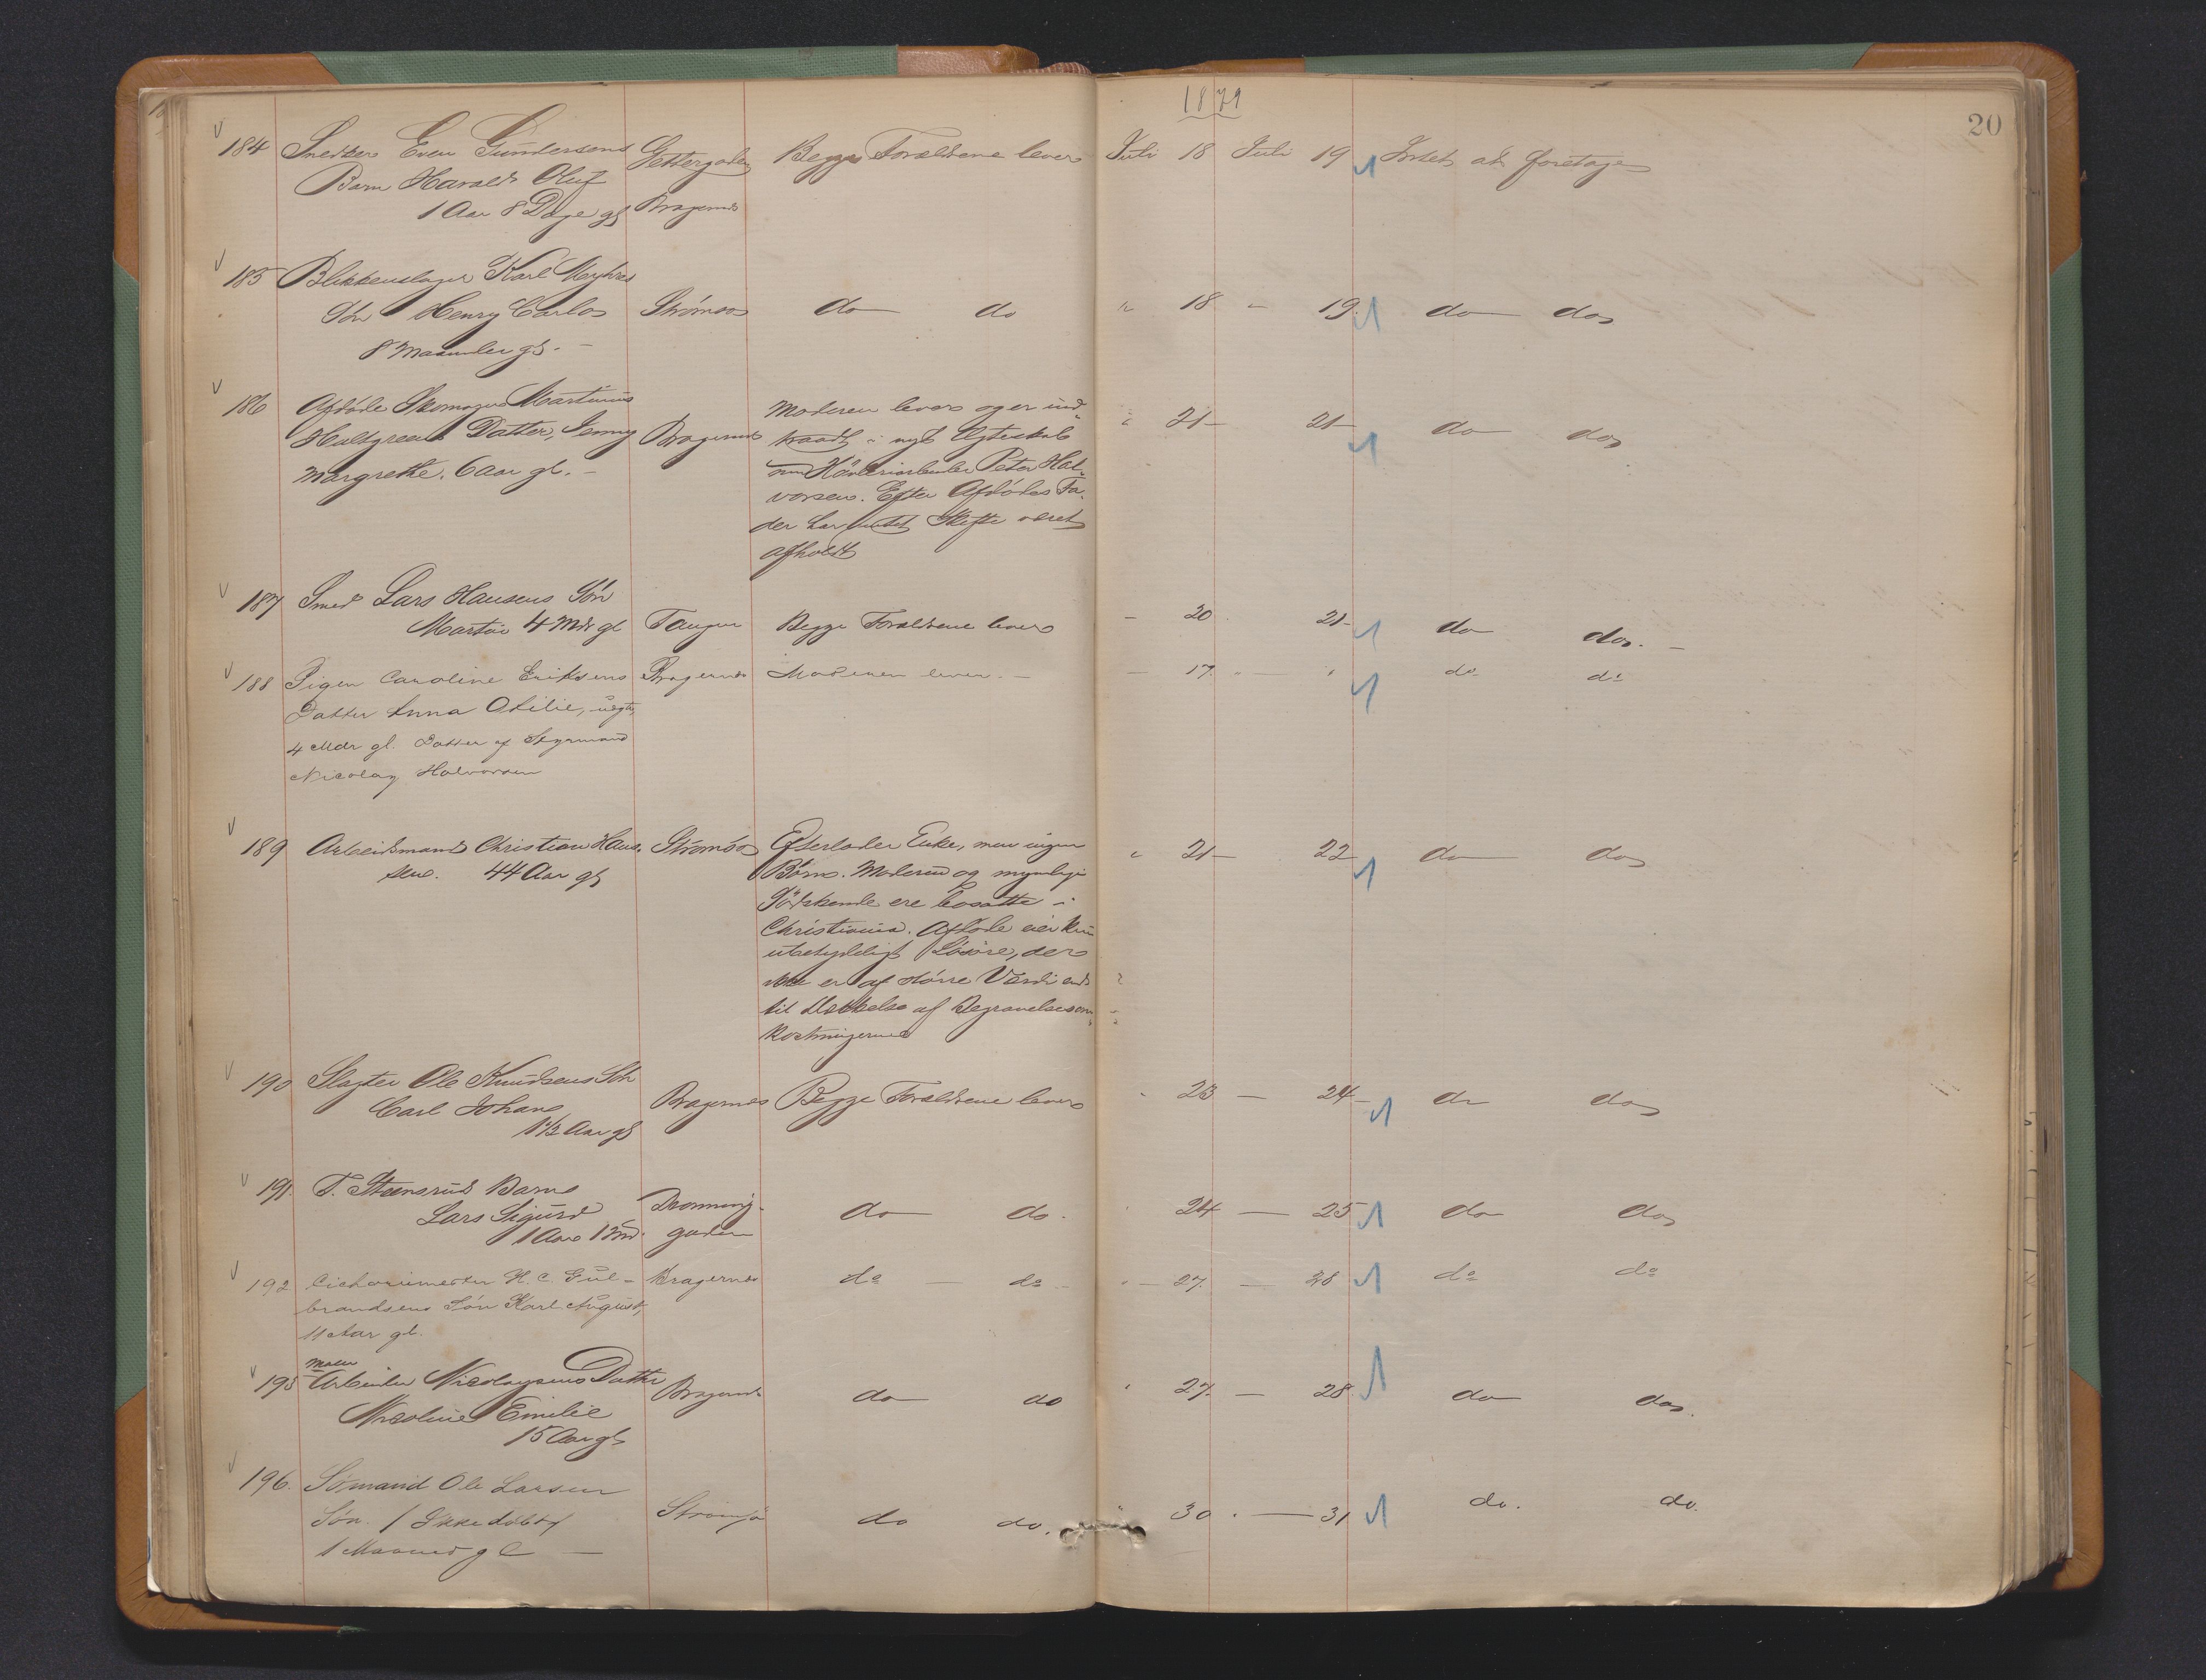 1879
20
184 Snedker Even Gundersens Gettergaden Begge Forældrene lever Juli 18 Juli 19 Intet at foretage
Barn Harald Oluf
1 Aar 8 Dage gl Bragernes
185 Blikkenslager Karl Myhres
Søn Henry Carlos Strømsø do do " 18 - 19. do do
8 Maaneder gl. -
186 Afdøde Skomager Martinius Moderen lever og er ind-
Hultgreens Datter, Jenny Bragernes traadt i nyt Ægteskab " 21 - 21 - do do
Margrethe. 6 Aar gl. - med Peter Hal-
vorsen. Efter Afdødes Fa-
der har intet Skifte været
afholdt
187 Smed Lars Hansens Søn
Martin 4 Mdr gl Tangen Begge Forældrene lever - 20 21 - do do. -
188 Pigen Caroline Eriksens Bragernes Moderen lever. - - 17. " - " do do
Datter Anna Otilie, uægte,
4 Mdr gl. Datter af Styrmand
Nicolay Halvorsen
189 Arbeidsmand Christian Han- Strømsø Efterlader Enke, men ingen " 21 - 22 do do
sen. 44 Aar gl Børn. Moderen og myndige
Sødskende ere bosatte i
Christiania. Afdøde eier kun
ubetydeligt Løsøre, der
ikke er af større Værdi end
til Dækkelse af Begravelsesom-
kostningerne
190 Slagter Ole Knudsens Søn
Carl Johan Bragernes Begge Forældrene lever " 23 - 24 - do do
1 1/2 Aar gl
191. T. Steensrud Barn
Lars Sigurd Dronning- do do. " 24 - 25 do do
1 Aar 1 Md. gaden
192 Cichoriemester H. C. Gul- Bragernes do - do - " - 27. - 28 do do
brandsens Søn Karl August,
11 Aar gl.
Maler
193 Arbeider Nicolaysens Datter Bragernes do do " 27. - 28. do do.
Nicoline Emilie
15 Aar gl
196. Sømand Ole Larsen
Søn. / Ikke døbt / Strømsø do do. " 30 . - 31 do. do.
1 Maaned gl -